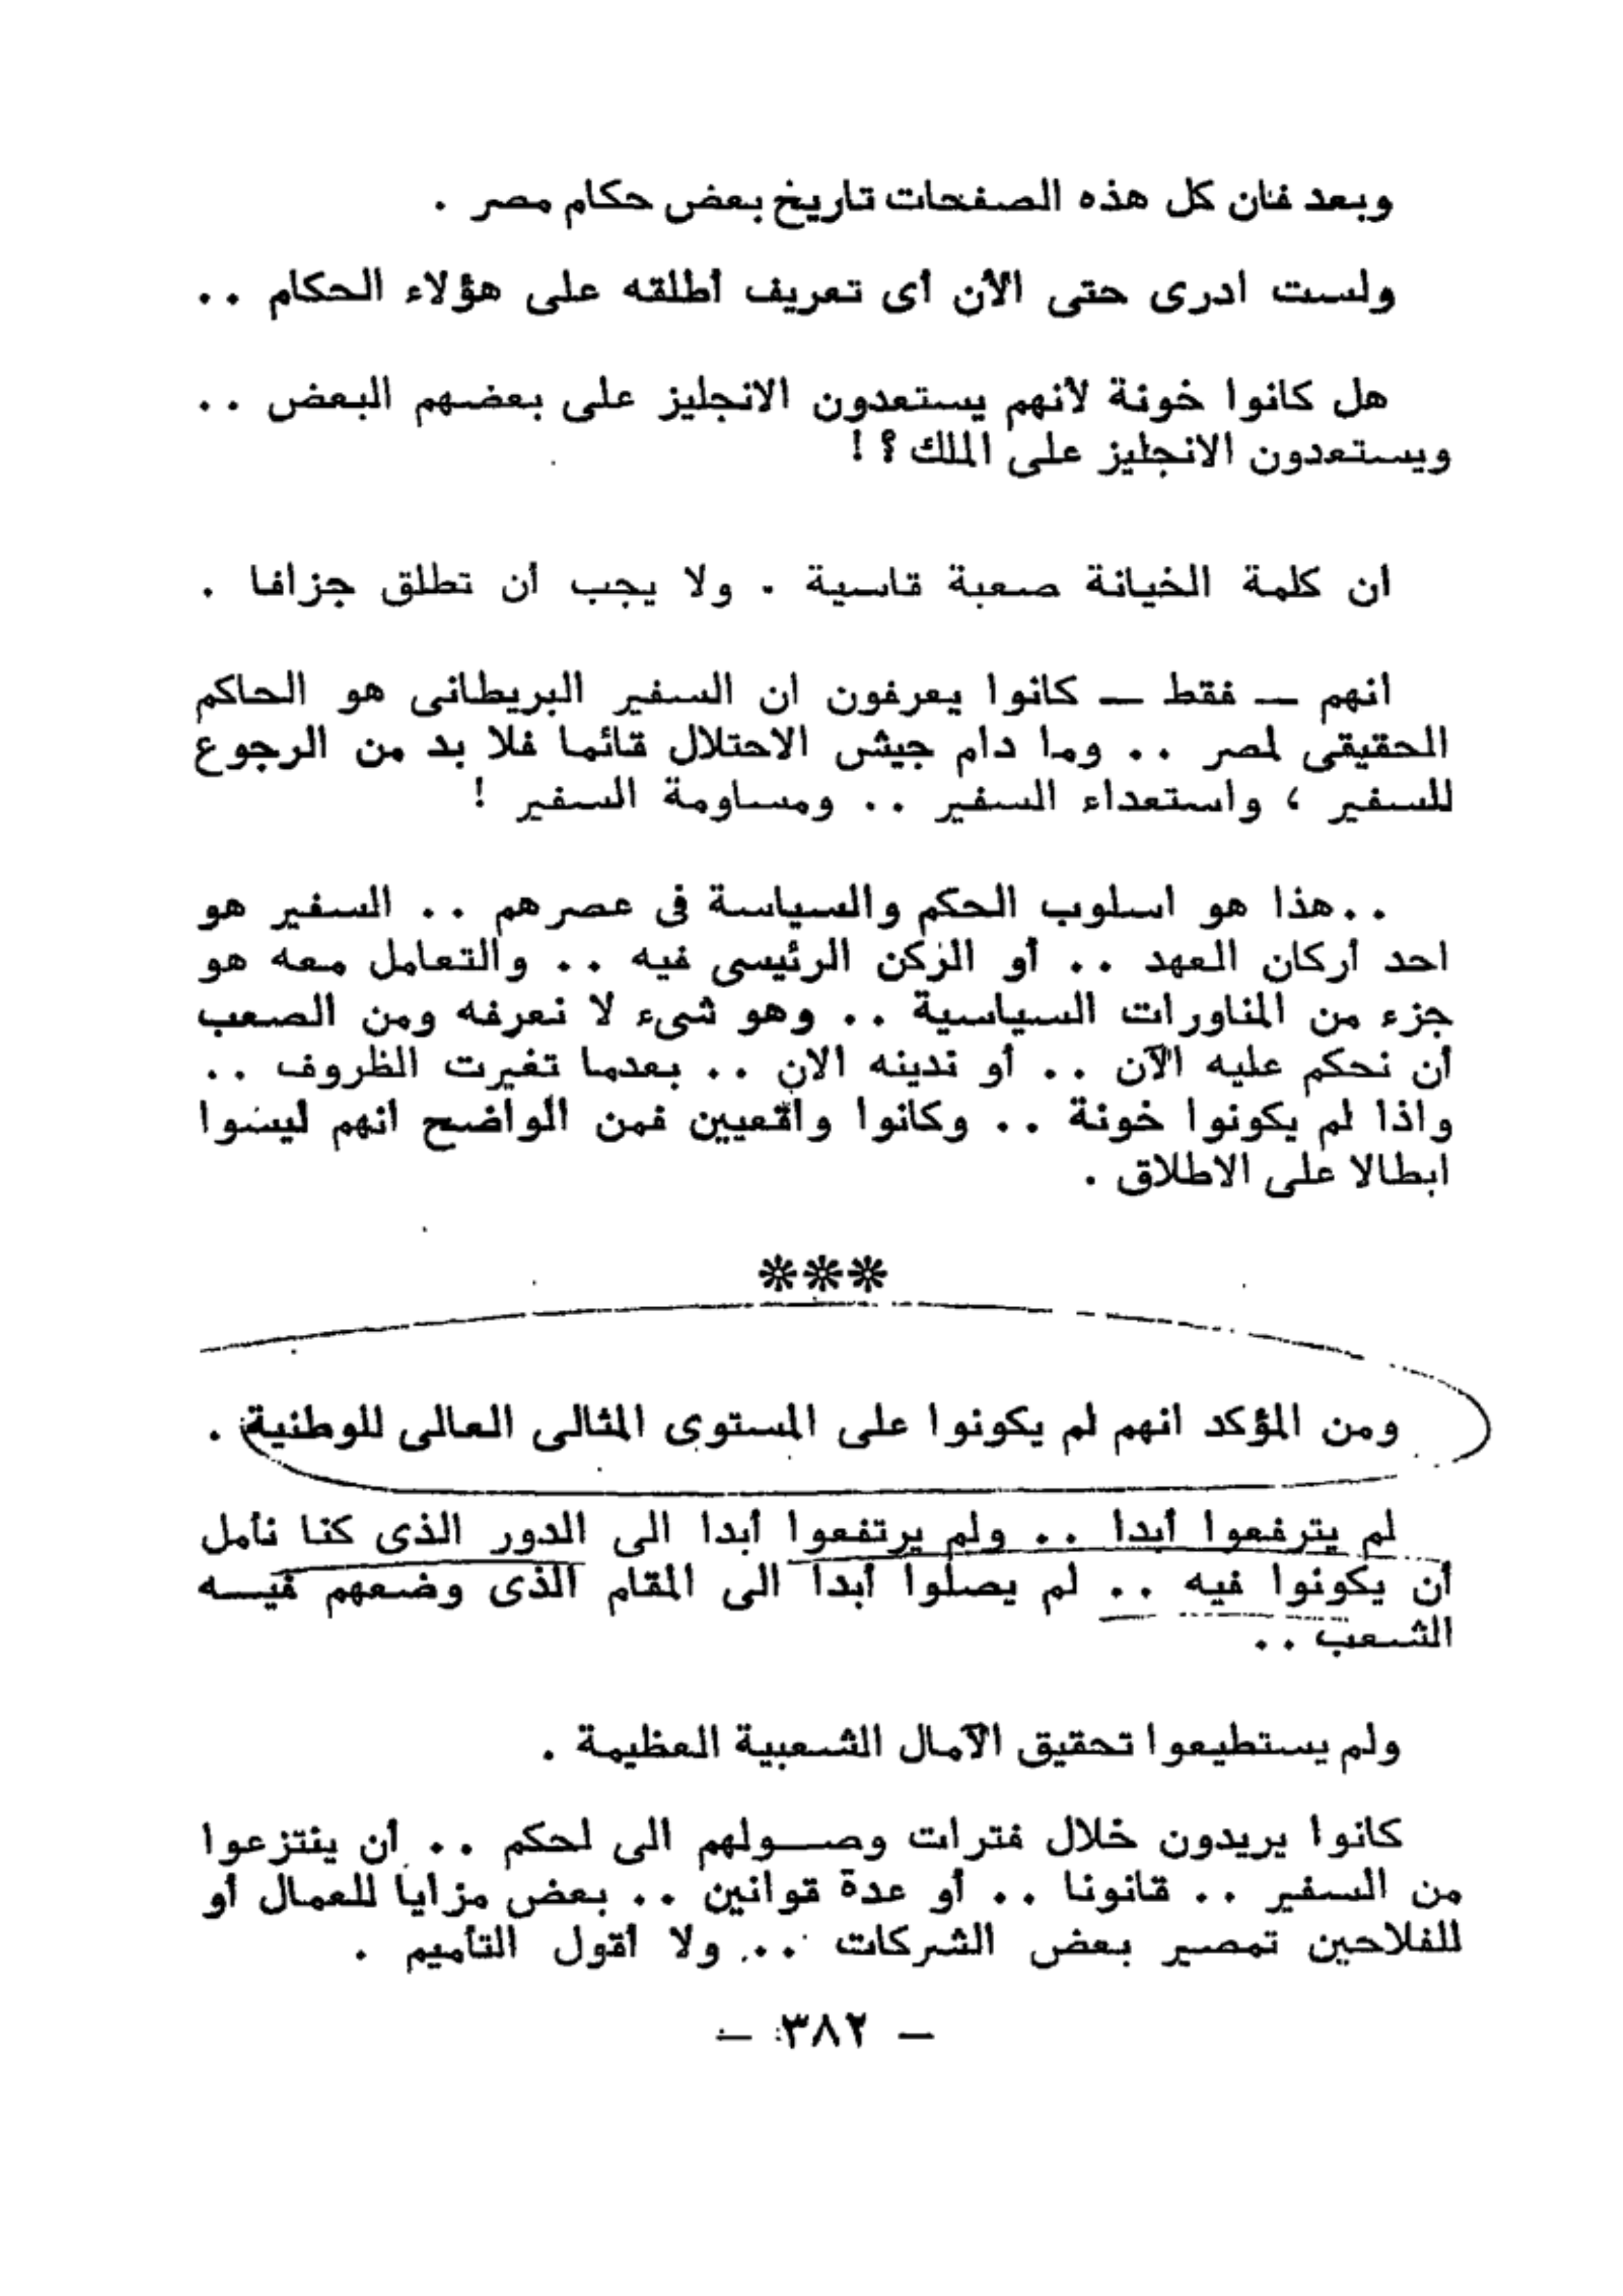 وبعد فان كل هذه الصفحات تاريخ بعض حكام مصر .
ولست ادرى حتى الأن أى تعريف أطلقه على هؤلاء الحكام ..
هل كانوا خونة لأنهم يستعدون الانجليز على بعضهم البعض ..
ويستعدون الانجليز على الملك ؟ !
أن كلمة الخيانة صعبة قاسية . ولا يجب أن تطلق جزافا .
أنهم — فقط — كانوا يعرفون ان السفير البريطانى هو الحاكم
الحقيقى لمصر .. وما دام جيش الاحتلال قائما فلا بد من الرجوع
للسفير ، واستعداء السفير .. ومساومة السفير !
..هذا هو اسلوب الحكم والسياسة فى عصرهم .. السفير هو
احد أركان العهد .. أو الركن الرئيسى فيه .. والتعامل معه هو
جزء من المناورات السياسية .. وهو شىء لا نعرفه ومن الصعب
أن نحكم عليه الآن .. أو ندينه الان .. بعدما تغيرت الظروف ..
واذا لم يكونوا خونة .. وكانوا واقعيين فمن الواضح انهم ليسوا
ابطالا على الاطلاق .
***
ومن المؤكد انهم لم يكونوا على المستوى المثالى العالى للوطنية .
لم يترفعوا أبدا .. ولم يرتفعوا أبدا الى الدور الذى كنا نأمل
أن يكونوا فيه .. لم يصلوا أبدا الى المقام الذى وضعهم فيـــه
الشعب ..
ولم يستطيعوا تحقيق الآمال الشعبية العظيمة .
كانوا يريدون خلال فترات وصـــولهم الى لحكم .. أن ينتزعوا
من السفير .. قانونا .. أو عدة قوانين .. بعض مزايا للعمال أو
للفلاحين تمصير بعض الشركات .. ولا أقول التأميم .
— ٣٨٢ —